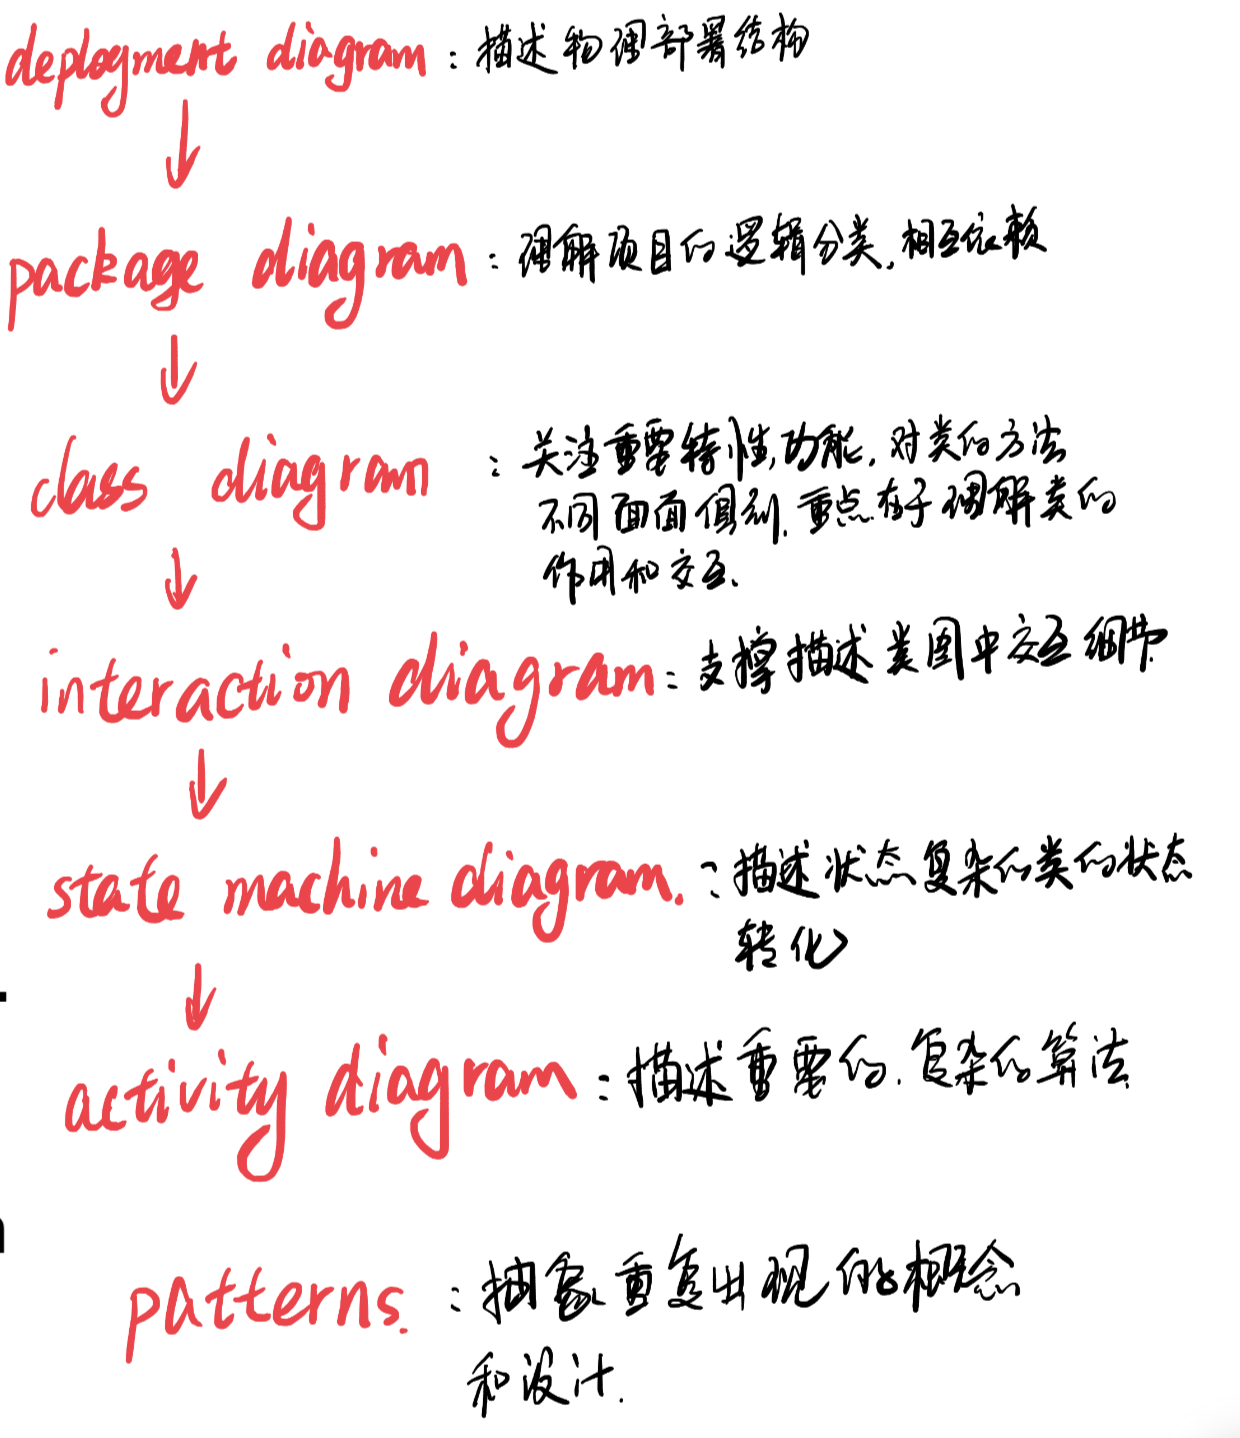 deployment diagram : 描述物理部署结构
↓
package diagram : 理解项目的逻辑分类,相互依赖
↓
class diagram : 关注重要特性,功能,对类的方法
不同面面俱到.重点在于理解类的
作用和交互.
↓
interaction diagram : 支撑描述类图中交互细节
↓
state machine diagram. : 描述状态复杂的类的状态
转化
↓
activity diagram : 描述重要的.复杂的算法
patterns. : 抽象重复出现的概念
和设计.